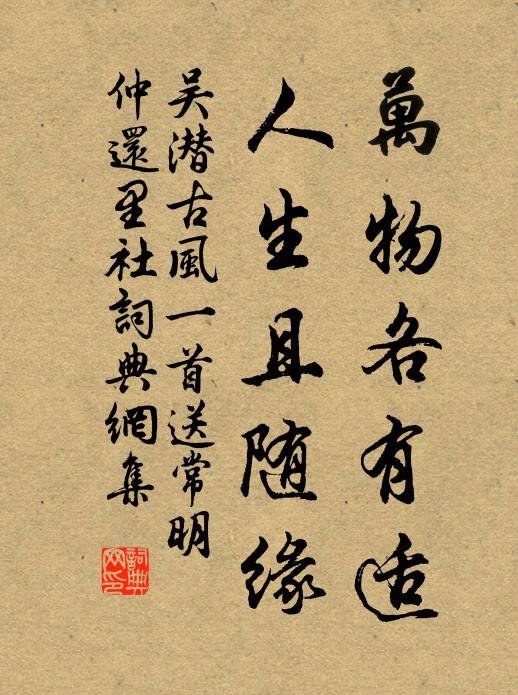 萬物各有适
人生且随缘
吴潜古風一首送常明
仲還里社詞典網集
詞典网印